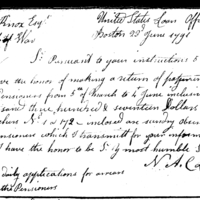 Knox Esqr. United States Loan Off
of War Boston 23d June 1791
Sr. Pursuant to your instructions
have the honor of making a return of
Pensioners from 5th of March to 4 June inclusive
sand three hundred & seventeen Dollars
No. 1 a 172 — inclosed are sundry
Pensioners which I transmit for your inform
I have the honor to be Sr. your most humble
N. A
daily applications for arrears
the Pensioners